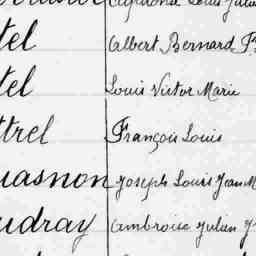 Alphonse Louis Julien
tel Albert Bernard F
tel Louis Victor Marie
ttrel François Louis
uasnon Joseph Louis Jean M
udray Ambroise Julien J